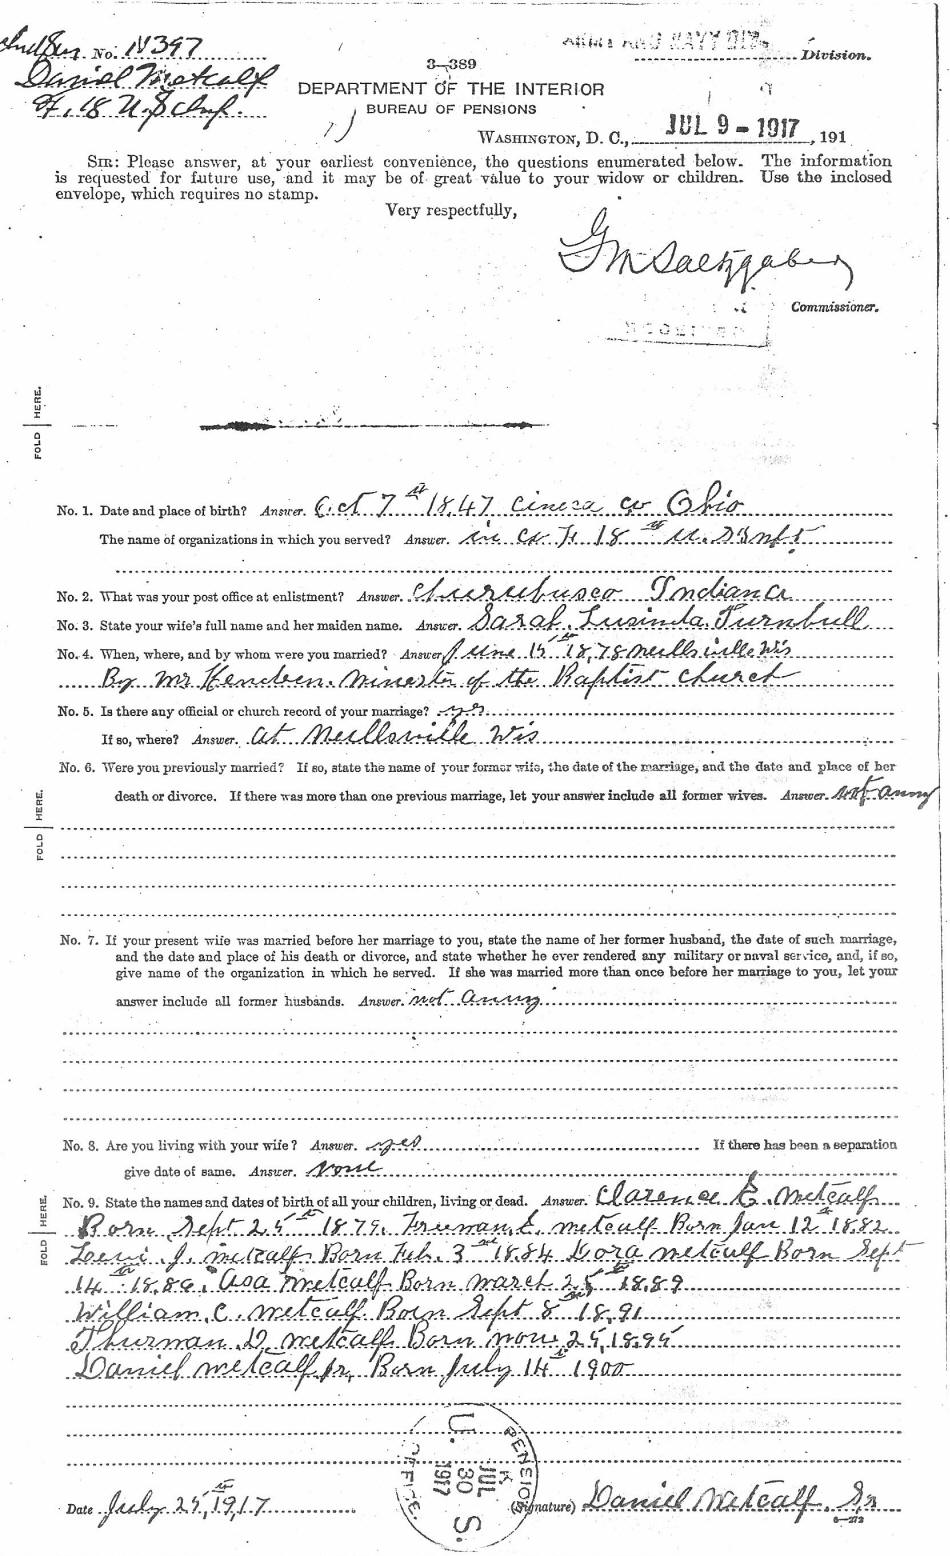 No. N397
ARMY AND NAVY DIV. Division.
Daniel Metcalf
3—389
DEPARTMENT OF THE INTERIOR
F, 18 U.S. Inf.
BUREAU OF PENSIONS
WASHINGTON, D. C., JUL 9 - 1917, 191
SIR: Please answer, at your earliest convenience, the questions enumerated below. The information
is requested for future use, and it may be of great value to your widow or children. Use the inclosed
envelope, which requires no stamp.
Very respectfully,
G M Saltzgaber
Commissioner.
FOLD HERE.
No. 1. Date and place of birth? Answer. Oct 7 1847 co Ohio
The name of organizations in which you served? Answer. in co F 18th U.S Inft
No. 2. What was your post office at enlistment? Answer. Churubusco Indiana
No. 3. State your wife's full name and her maiden name. Answer. Sarah Lusinda Turnbull
No. 4. When, where, and by whom were you married? Answer. June 15th 1878 Neillsville Wis
By Mr Minester of the Baptist Church
No. 5. Is there any official or church record of your marriage? yes
If so, where? Answer. at Neillsville Wis
No. 6. Were you previously married? If so, state the name of your former wife, the date of the marriage, and the date and place of her
death or divorce. If there was more than one previous marriage, let your answer include all former wives. Answer. not anny
FOLD HERE.
No. 7. If your present wife was married before her marriage to you, state the name of her former husband, the date of such marriage,
and the date and place of his death or divorce, and state whether he ever rendered any military or naval service, and, if so,
give name of the organization in which he served. If she was married more than once before her marriage to you, let your
answer include all former husbands. Answer. not anny
No. 8. Are you living with your wife? Answer. yes If there has been a separation
give date of same. Answer. None
FOLD HERE.
No. 9. State the names and dates of birth of all your children, living or dead. Answer. Clarence E. Metcalf
Born Sept 25th 1879. Freeman E. Metcalf Born Jan 12th 1882
J. Metcalf Born Feb. 3 1884 Dora Metcalf Born Sept
14th 1886. Asa Metcalf Born March 25th 1889
William C. Metcalf Born Sept 8 1891
Thurman D Metcalf Born Nov 25, 1895
Daniel Metcalf jr, Born July 14th 1900
U. S. PENSION OFFICE. JUL 30 1917
Date July 25th, 1917
(Signature) Daniel Metcalf, Sr
6—272